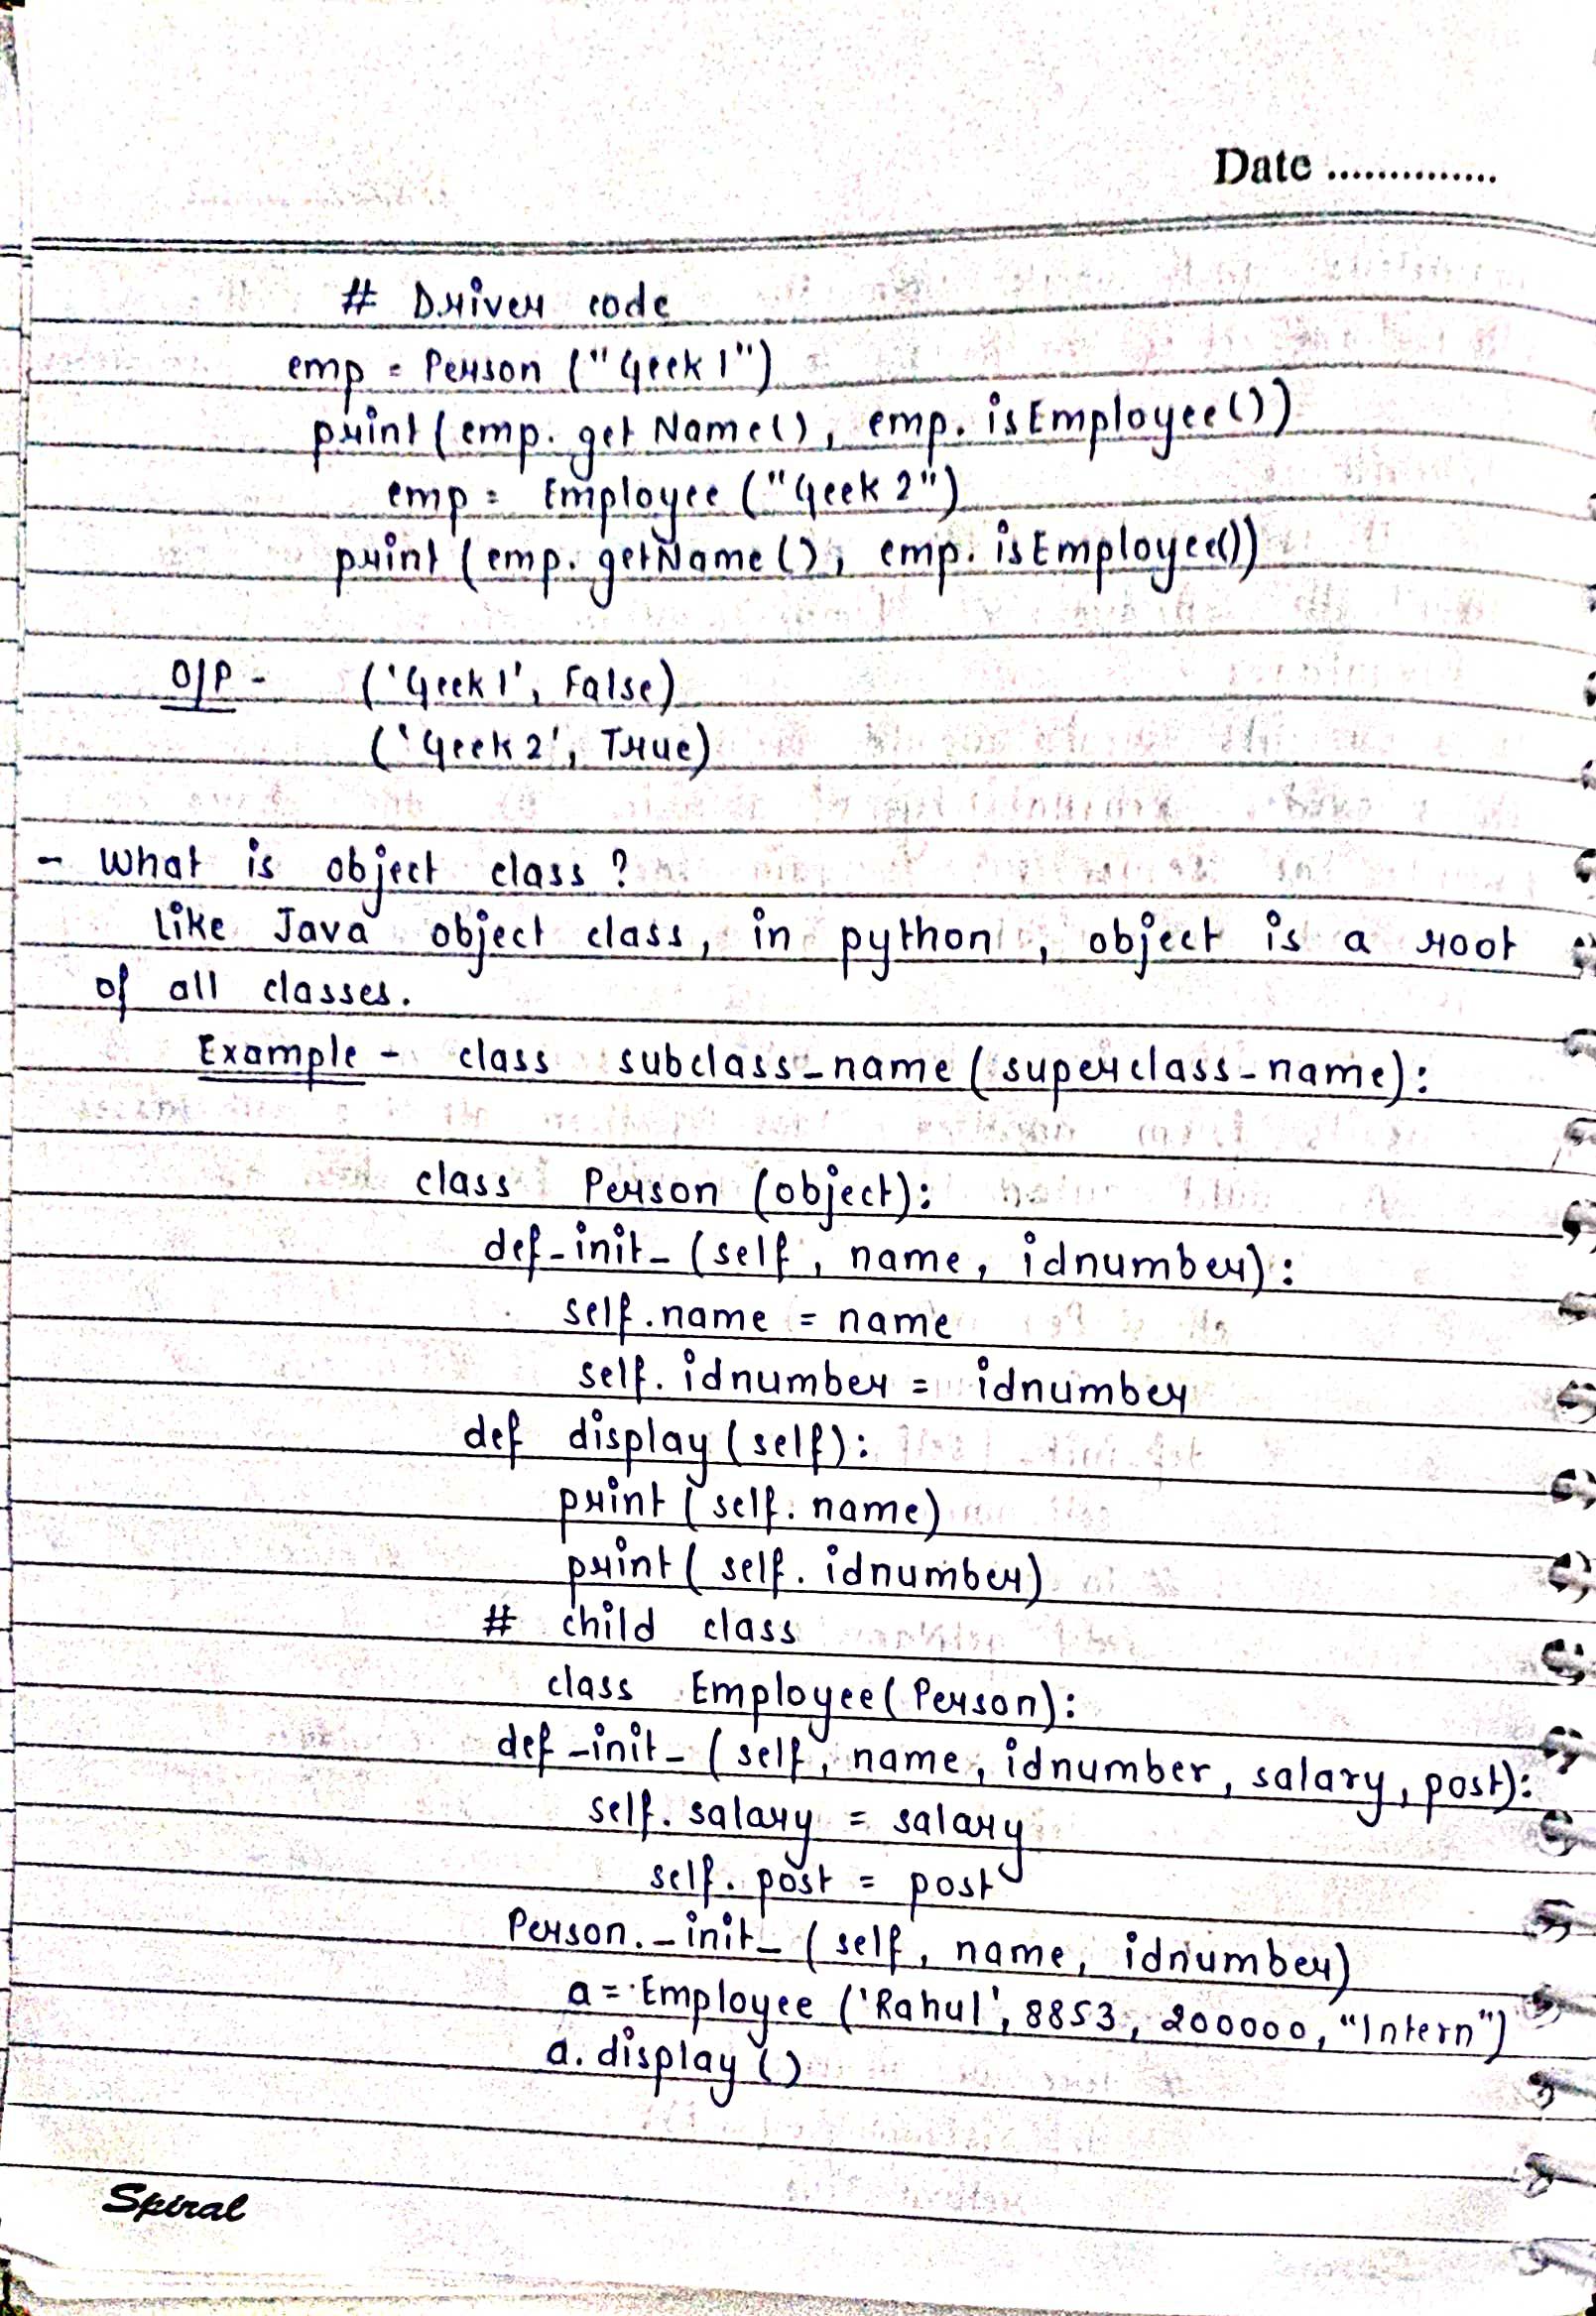 Date ..............
# Driver code
emp = Person ("Geek 1")
print (emp. get Name(), emp. isEmployee())
emp = Employee ("Geek 2")
print (emp. getName(), emp. isEmployee())
O/P - ('Geek 1', False)
('Geek 2', True)
- What is object class ?
Like Java object class, in python , object is a root
of all classes.
Example - class subclass_name (superclass_name):
class Person (object):
def _init_ (self , name, idnumber):
self.name = name
self. idnumber = idnumber
def display (self):
print (self. name)
print (self. idnumber)
# child class
class Employee (Person):
def _init_ (self, name, idnumber, salary, post):
self. salary = salary
self. post = post
Person._init_ (self, name, idnumber)
a = Employee ('Rahul', 8853, 200000, "Intern")
a. display ()
Spiral